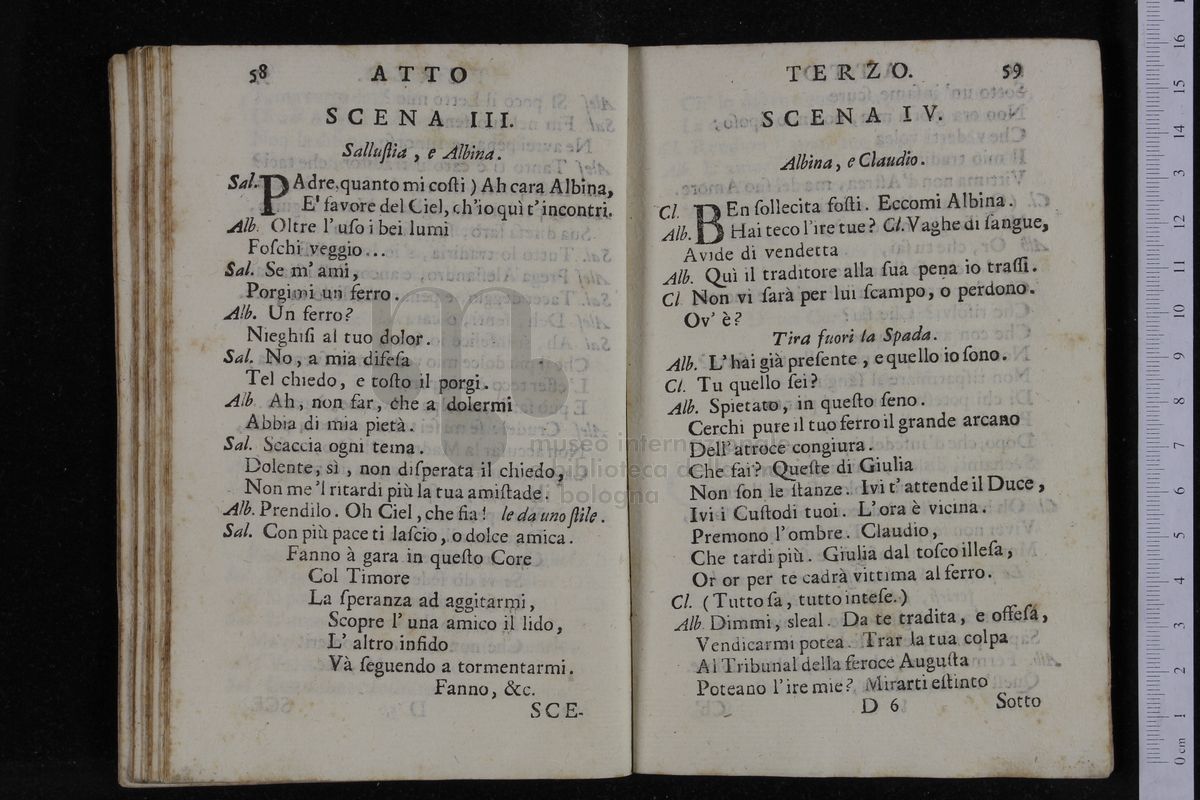 58 ATTO
SCENA III.
Salluſtia , e Albina.
Sal. PAdre, quanto mi coſti ) Ah cara Albina,
E' favore del Ciel, ch'io quì t'incontri.
Alb. Oltre l' uſo i bei lumi
Foſchi veggio...
Sal. Se m' ami,
Porgimi un ferro.
Alb. Un ferro?
Nieghiſi al tuo dolor.
Sal. No, a mia difeſa
Tel chiedo, e toſto il porgi.
Alb. Ah, non far, che a dolermi
Abbia di mia pietà.
Sal. Scaccia ogni tema.
Dolente, sì, non diſperata il chiedo,
Non me 'l ritardi più la tua amiſtade.
Alb. Prendilo. Oh Ciel, che fia! le da uno ſtile.
Sal. Con più pace ti laſcio, o dolce amica.
Fanno à gara in queſto Core
Col Timore
La ſperanza ad aggitarmi,
Scopre l' una amico il lido,
L' altro infido
Và ſeguendo a tormentarmi.
Fanno, &c.
SCE-
TERZO. 59
SCENA IV.
Albina, e Claudio.
Cl. BEn ſollecita foſti. Eccomi Albina.
Alb. Hai teco l'ire tue? Cl. Vaghe di ſangue,
Avide di vendetta
Alb. Quì il traditore alla ſua pena io traſſi.
Cl. Non vi ſarà per lui ſcampo, o perdono.
Ov' è?
Tira fuori la Spada.
Alb. L'hai già preſente, e quello io ſono.
Cl. Tu quello ſei?
Alb. Spietato, in queſto ſeno.
Cerchi pure il tuo ferro il grande arcano
Dell' atroce congiura.
Che fai? Queſte di Giulia
Non ſon le ſtanze. Ivi t' attende il Duce,
Ivi i Cuſtodi tuoi. L'ora è vicina.
Premono l'ombre. Claudio,
Che tardi più. Giulia dal toſco illeſa,
Or or per te cadrà vittima al ferro.
Cl. (Tutto ſa, tutto inteſe.)
Alb. Dimmi, sleal. Da te tradita, e offeſa,
Vendicarmi potea. Trar la tua colpa
Al Tribunal della feroce Auguſta
Poteano l'ire mie? Mirarti eſtinto
D 6 Sotto
museo internazionale
biblioteca della musica
di bologna